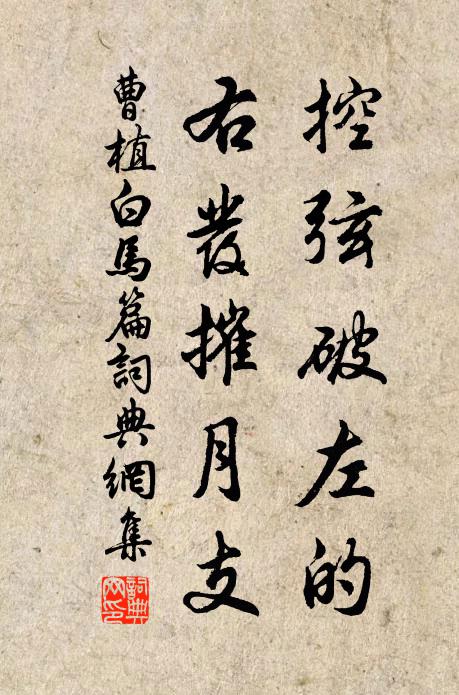 控弦破左的
右發摧月支
曹植白馬篇詞典網集
詞典網印